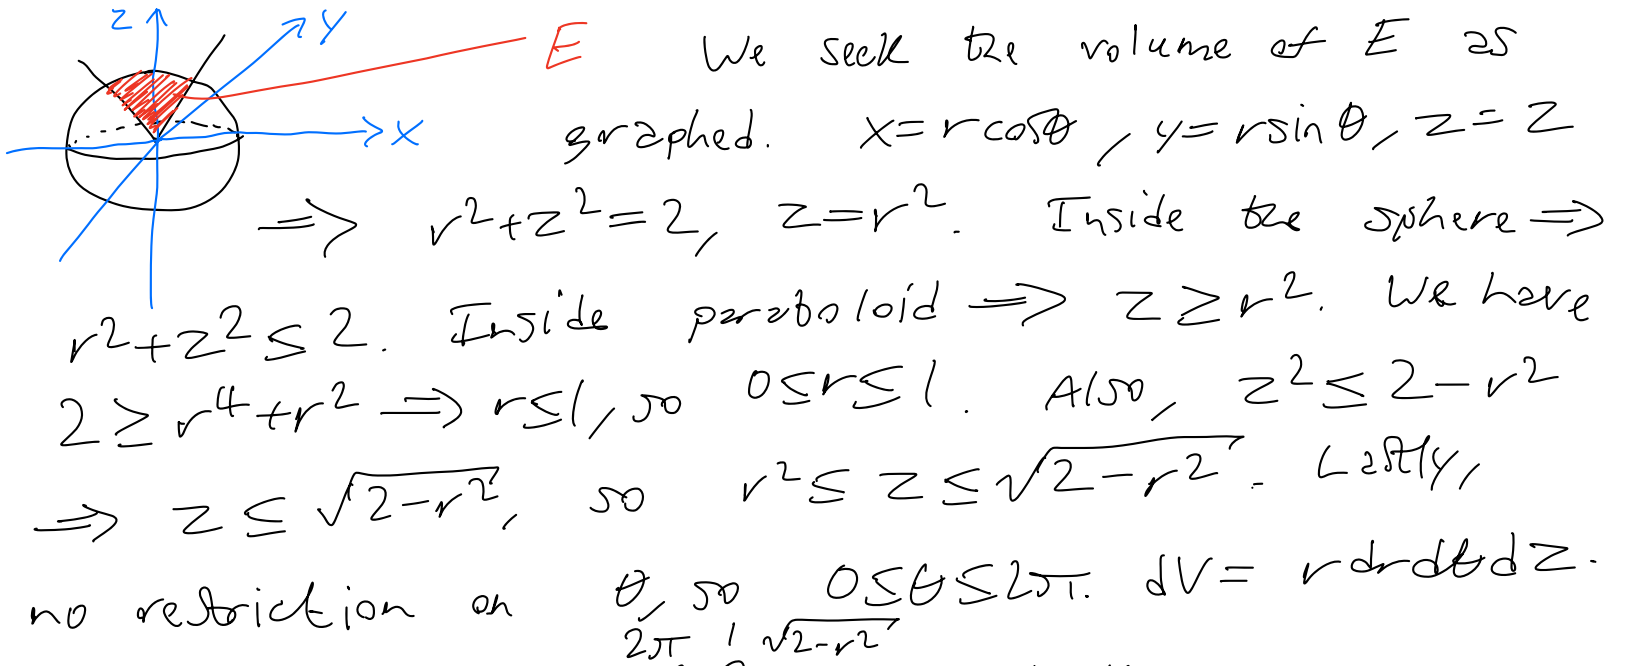 z y E We seek the volume of E as
x graphed. x=rcosθ, y=rsinθ, z=z
⇒ r²+z²=2, z=r². Inside the sphere ⇒
r²+z²≤2. Inside paraboloid ⇒ z≥r². We have
2≥r⁴+r² ⇒ r≤1, so 0≤r≤1. Also, z²≤2-r²
⇒ z≤√(2-r²), so r²≤z≤√(2-r²). Lastly,
no restriction on θ, so 0≤θ≤2π. dV= rdrdθdz.
2π 1 √(2-r²)